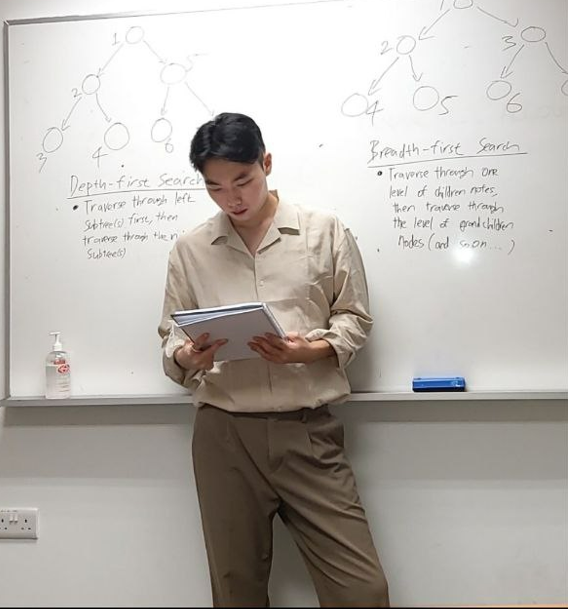 1
2
3
4
6
Depth-first Search
• Traverse through left
Subtree(s) first, then
traverse through the
Subtree(s)
1
2
3
4
5
6
Breadth-first Search
• Traverse through one
level of children notes,
then traverse through
the level of grandchildren
Nodes (and so on...)